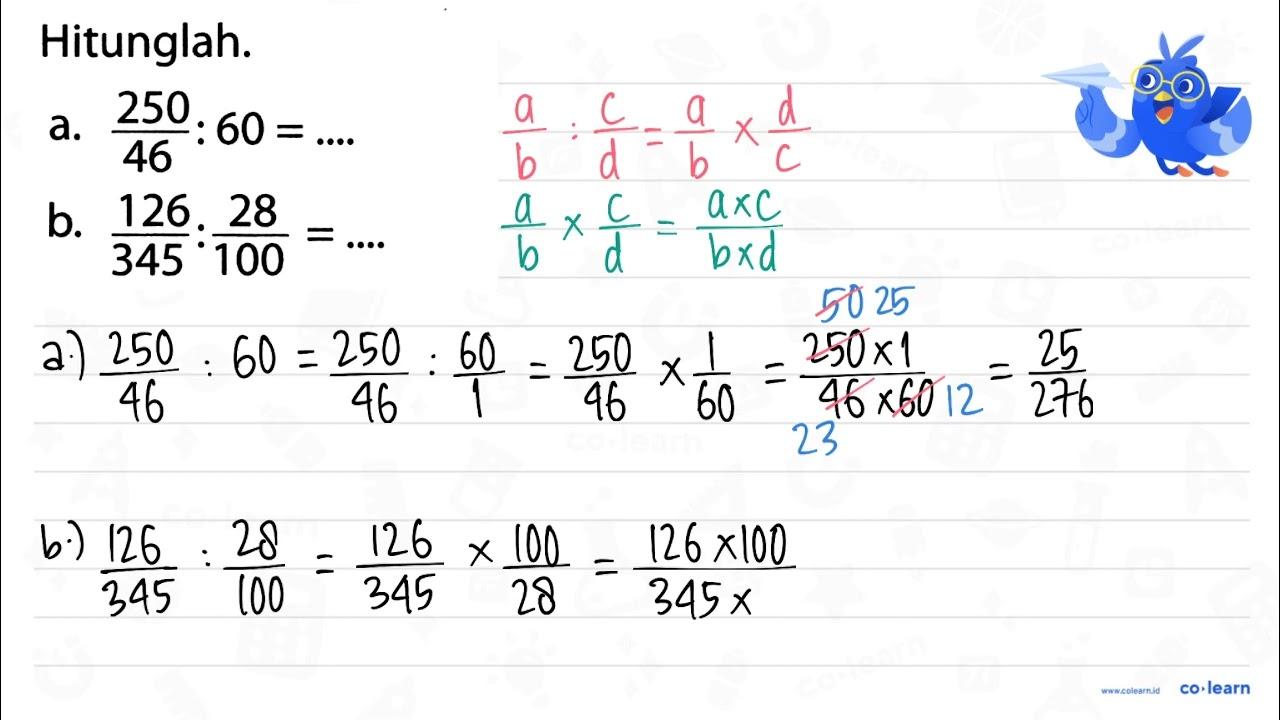 Hitunglah.
a. 250/46 : 60 = ....
a/b : c/d = a/b × d/c
b. 126/345 : 28/100 = ....
a/b × c/d = a×c/b×d
50 25
a.) 250/46 : 60 = 250/46 : 60/1 = 250/46 × 1/60 = 250×1/46×60 12 = 25/276
23
co·learn
b.) 126/345 : 28/100 = 126/345 × 100/28 = 126×100/345×
www.colearn.id co·learn